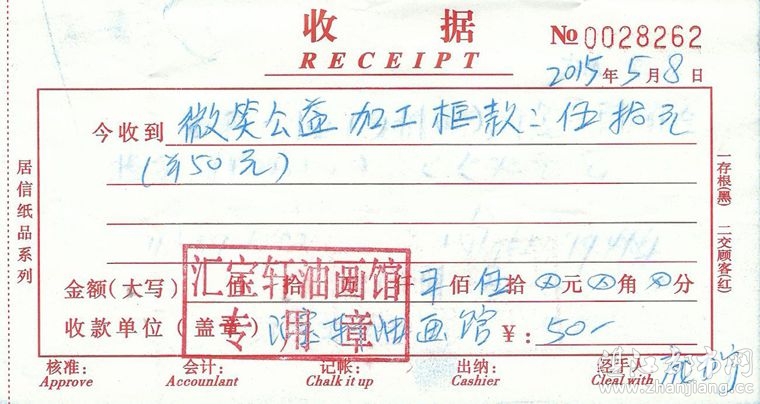 收 据
RECEIPT
№ 0028262
2015年5月8日
今收到 微笑公益 加工框款：伍拾元
（¥50元）
汇宝轩油画馆
专用章
金额（大写） 佰 拾 万 仟 佰 伍 拾 元 角 分
收款单位（盖章） 油画馆 ¥：50-
核准： 会计： 记帐： 出纳： 经手人
Approve Accounlant Chalk it up Cashier Cleal with
居信纸品系列
一存根(黑) 二交顾客(红)
www.zhanjiang.cc